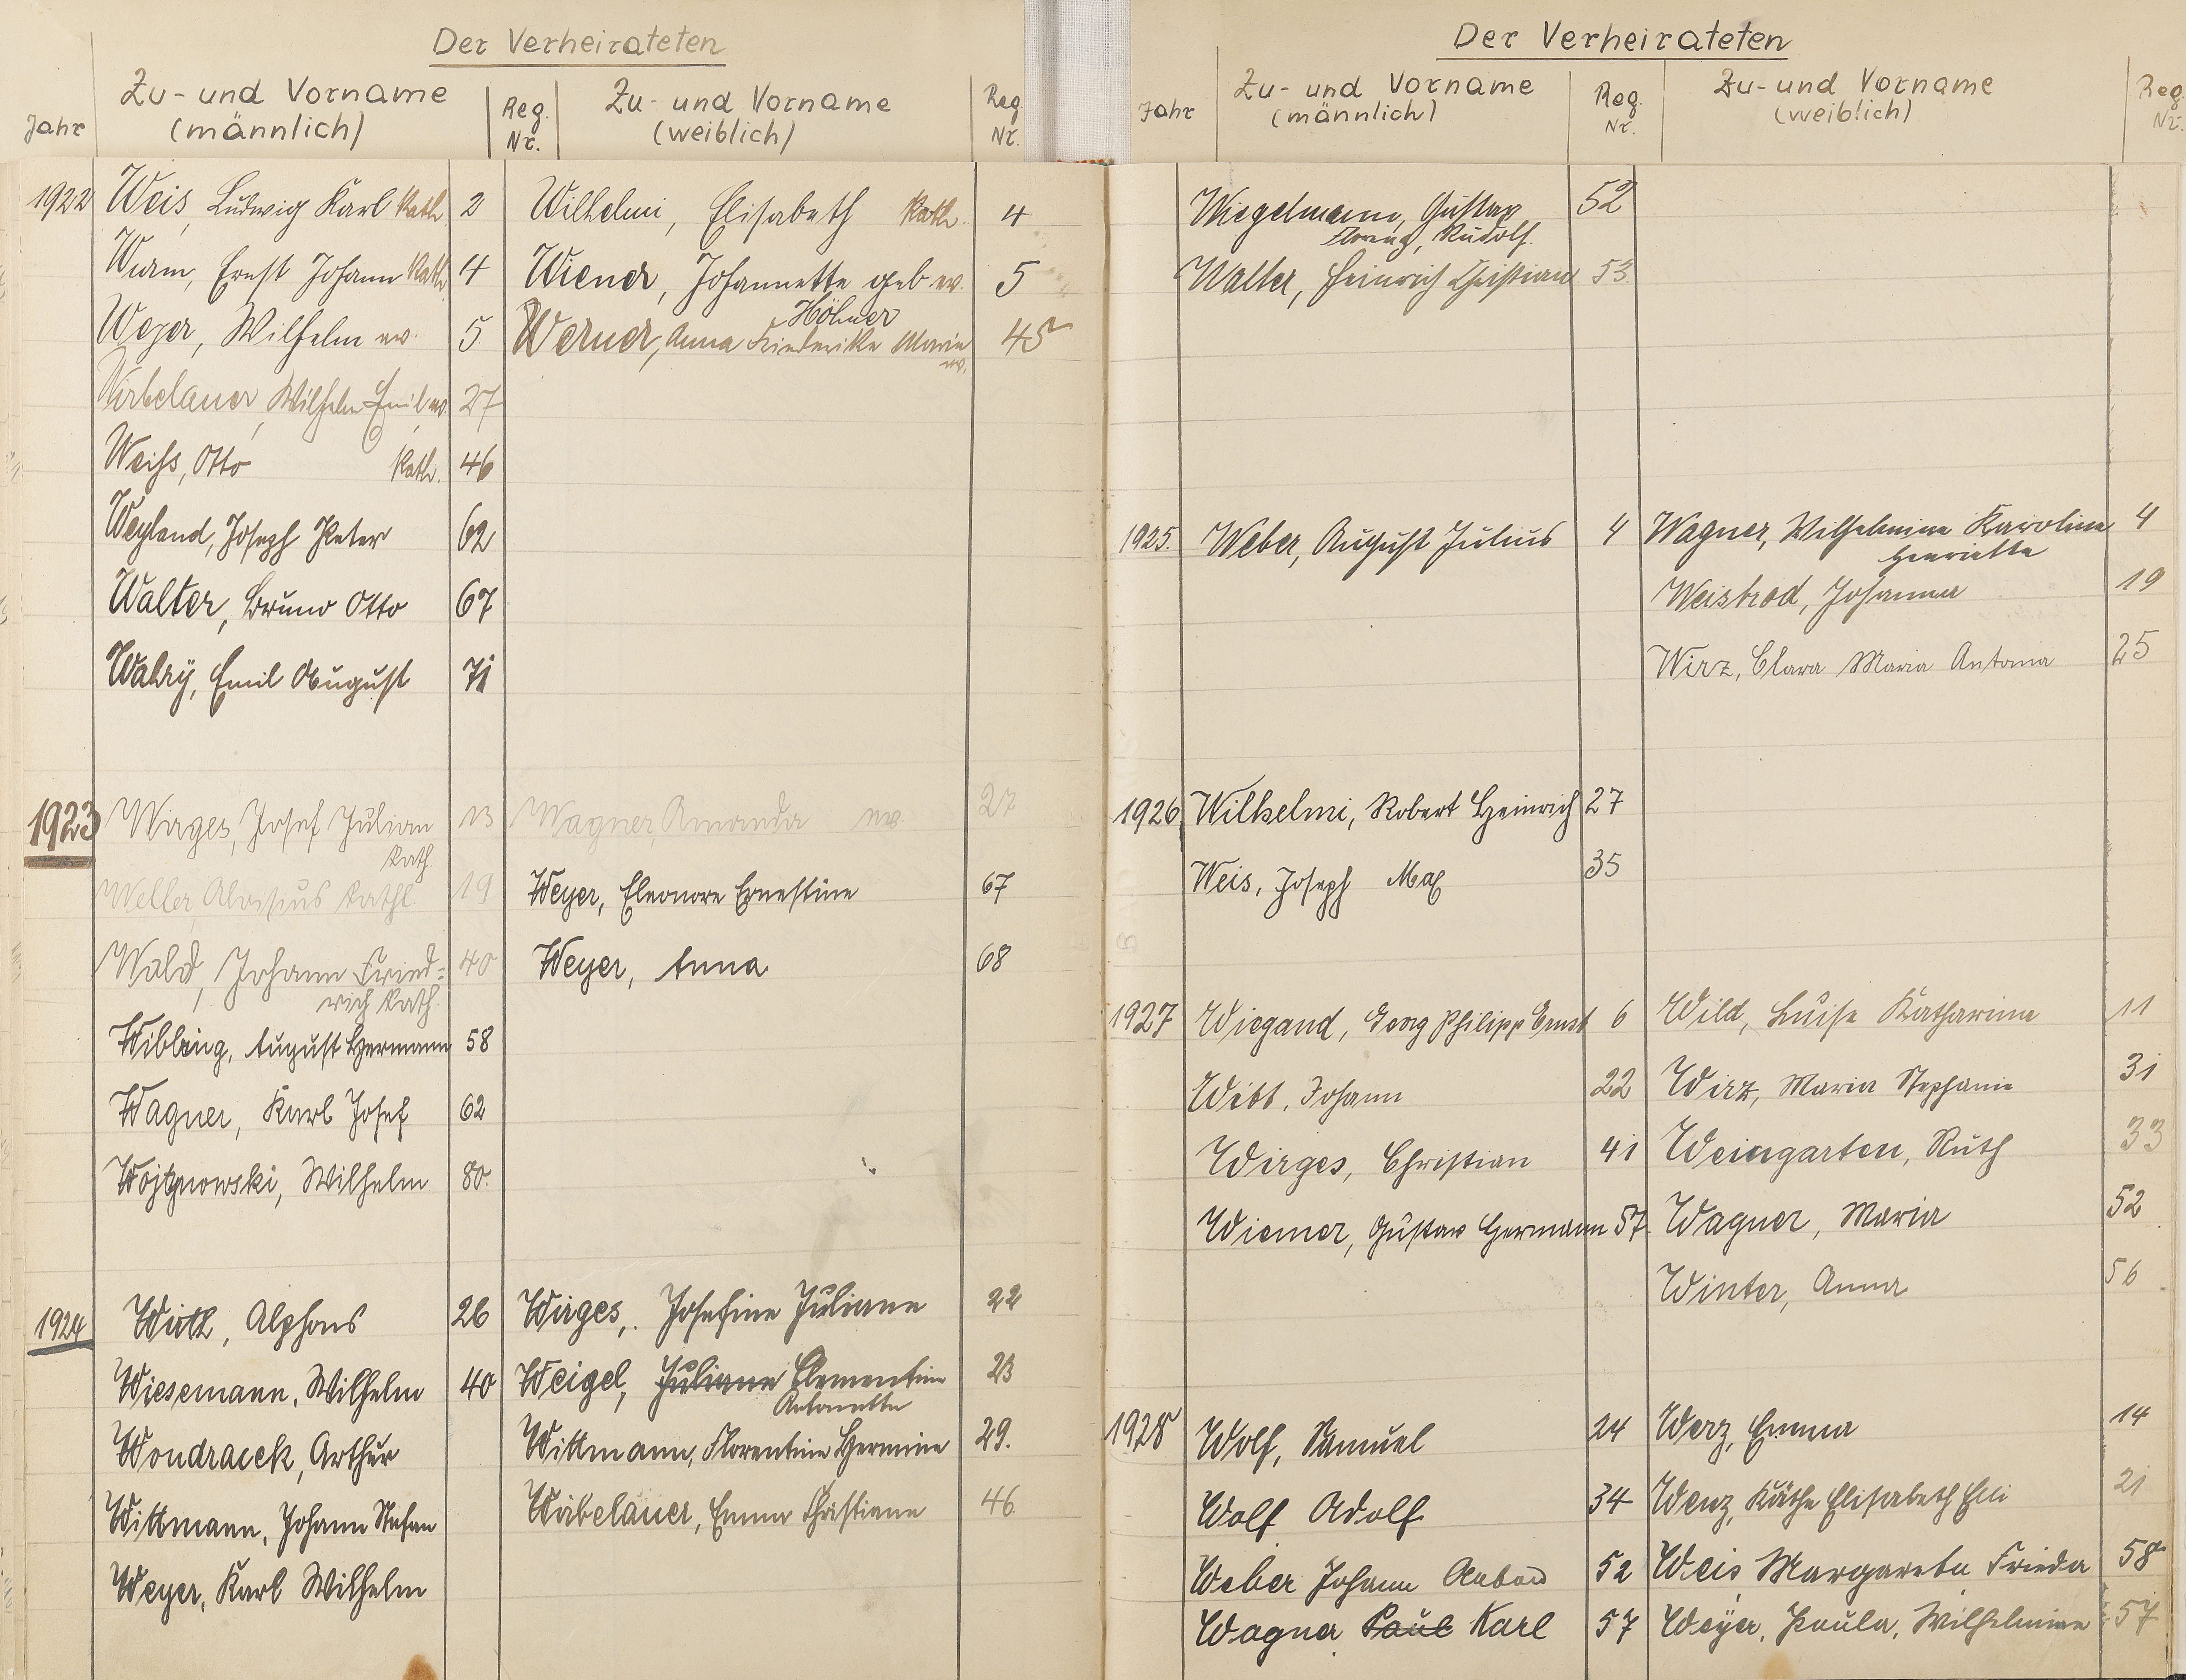 Der Verheirateten
Jahr Zu- und Vorname (männlich) Reg. Nr. Zu- und Vorname (weiblich) Reg. Nr.
1922 Weis, Ludwig Karl Kath. 2 Wilhelmi, Elisabeth Kath. 4
Wurm, Ernst Johann Kath. 4 Wiener, Johannette geb ev. 5
Höhner
Weyer, Wilhelm ev. 5 Werner, Anna Friederike Marie 45
ev.
Wirbelauer, Wilhelm Emil ev. 27
Weihs, Otto Kath. 46
Weyland, Joseph Peter 62
Walter, Bruno Otto 67
Walry, Emil August 71
1923 Wirges, Josef Julian 13 Wagner, Amanda ev. 27
Kath.
Weller, Aloisius Kathl. 19 Weyer, Eleonore Ernestine 67
Wald, Johann Fried= 40 Weyer, Anna 68
rich Kath.
Wibbing, August Hermann 58
Wagner, Karl Josef 62
Wilhelm 80.
1924 Wirth, Alphons 26 Wirges, Josefine Juliane 22
Wiesemann, Wilhelm 40 Weigel, Juliane Clementine 23
Antonette
Wondracek, Arthur Wittmann, Florentine Hermine 29.
Wittmann, Johann Stefan Wirbelauer, Emma Christiane 46.
Weyer, Karl Wilhelm
Der Verheirateten
Jahr Zu- und Vorname (männlich) Reg. Nr. Zu- und Vorname (weiblich) Reg. Nr.
Wiegelmann, Gustav 52
Florenz, Rudolf.
Walter, Heinrich Christian 53.
1925. Weber, August Julius 4 Wagner, Wilhelmine Karoline 4
Henriette
Weisbrod, Johanna 19
Wirz, Clara Maria Antonia 25
1926 Wilhelmi, Robert Heinrich 27
Weis, Joseph Max 35
1927 Wiegand, Georg Philipp Ernst 6 Wild, Luise Katharina 11
Witt, Johann 22 Wirz, Maria Stephanie 31
Wirges, Christian 41 Weingarten, Ruth 33
Wiemer, Gustav Hermann 57. Wagner, Maria 52
Winter, Anna 56
1928 Wolf, Samuel 24 Werz, Emma 14
Wolf Adolf 34 Wenz, Käthe Elisabeth Elli 21
Weber Johann 52 Weis Margareta Frieda 58
Wagner Paul Karl 57 Weyer, Paula, Wilhelmine 57